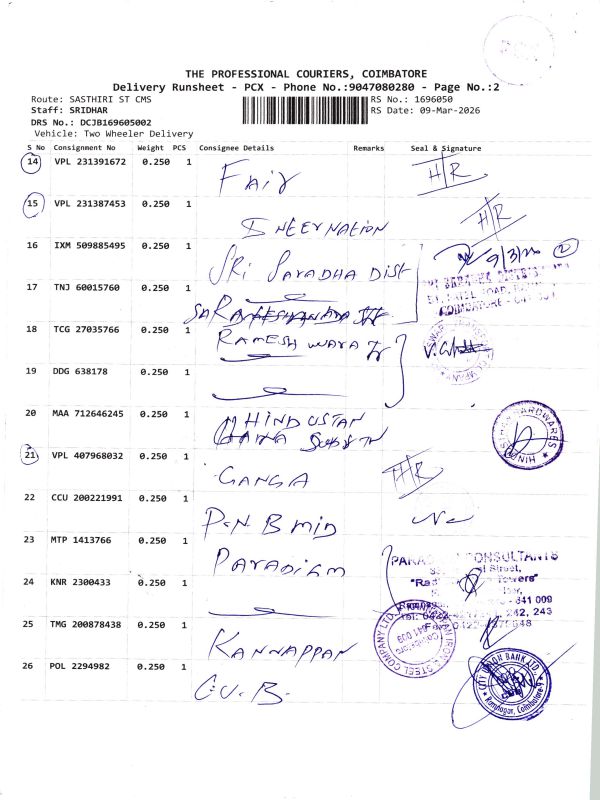 THE PROFESSIONAL COURIERS, COIMBATORE
Delivery Runsheet - PCX - Phone No.:9047080280 - Page No.:2
Route: SASTHIRI ST CMS
RS No.: 1696050
Staff: SRIDHAR
RS Date: 09-Mar-2026
DRS No.: DCJB169605002
Vehicle: Two Wheeler Delivery
S No Consignment No Weight PCS Consignee Details Remarks Seal & Signature
14 VPL 231391672 0.250 1 Fair H/R
15 VPL 231387453 0.250 1 H/R
16 IXM 509885495 0.250 1 SRI SARADHA DIST 9/3/
17 TNJ 60015760 0.250 1
18 TCG 27035766 0.250 1 RAMESH
19 DDG 638178 0.250 1
20 MAA 712646245 0.250 1 HINDUSTAN
21 VPL 407968032 0.250 1 GANGA H/R
22 CCU 200221991 0.250 1 P.N. B MID
23 MTP 1413766 0.250 1 PARADIGM
24 KNR 2300433 0.250 1
25 TMG 200878438 0.250 1 KANNAPPAN
26 POL 2294982 0.250 1 C.U.B.
CONSULTANTS
Towers"
641 009
242, 243
STEEL COMPANY LTD
CITY UNION BANK LTD
Ramnagar, Coimbatore-9